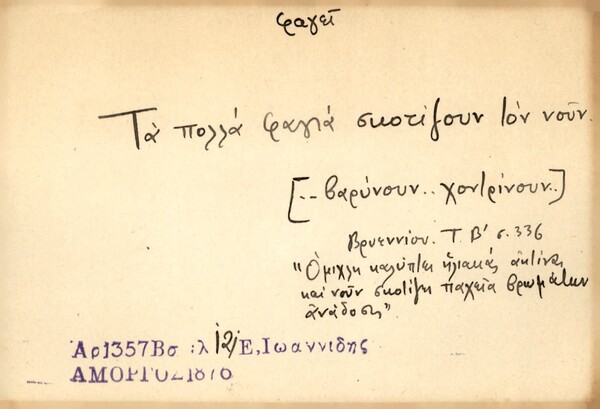 φαγεῖ
Τὰ πολλά φαγιά σκοτίζουν τὸν νοῦν.
[.. βαρύνουν.. χοντρίνουν.]
Βρυεννίου. Τ. Β' σ. 336
"Ὁμίχλη καλύπτει ἡλιακάς ἀκτίνας
καὶ νοῦν σκοτίζει παχεῖα βρωμάτων
ἀνάδοσις".
Αρ1357Βσ :λ 12/Ε,Ιωαννιδης
ΑΜΟΡΓΟΣ1876